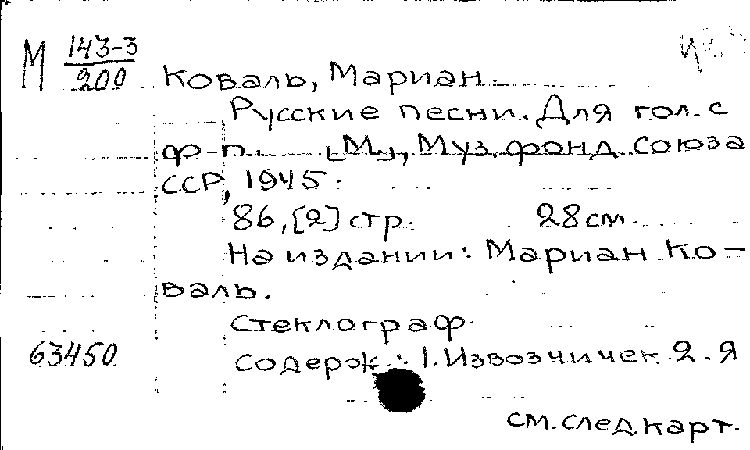 М 143-3
200 Коваль, Мариан.
Русские песни. Для гол. с
ф-п. [М.], Муз. фонд союза
ССР, 1945.
86, [2] стр. 28 см.
На издании: Мариан Ко-
валь.
Стеклограф.
63450 Содерж.: 1. Извозчичек 2. Я
см. след. карт.